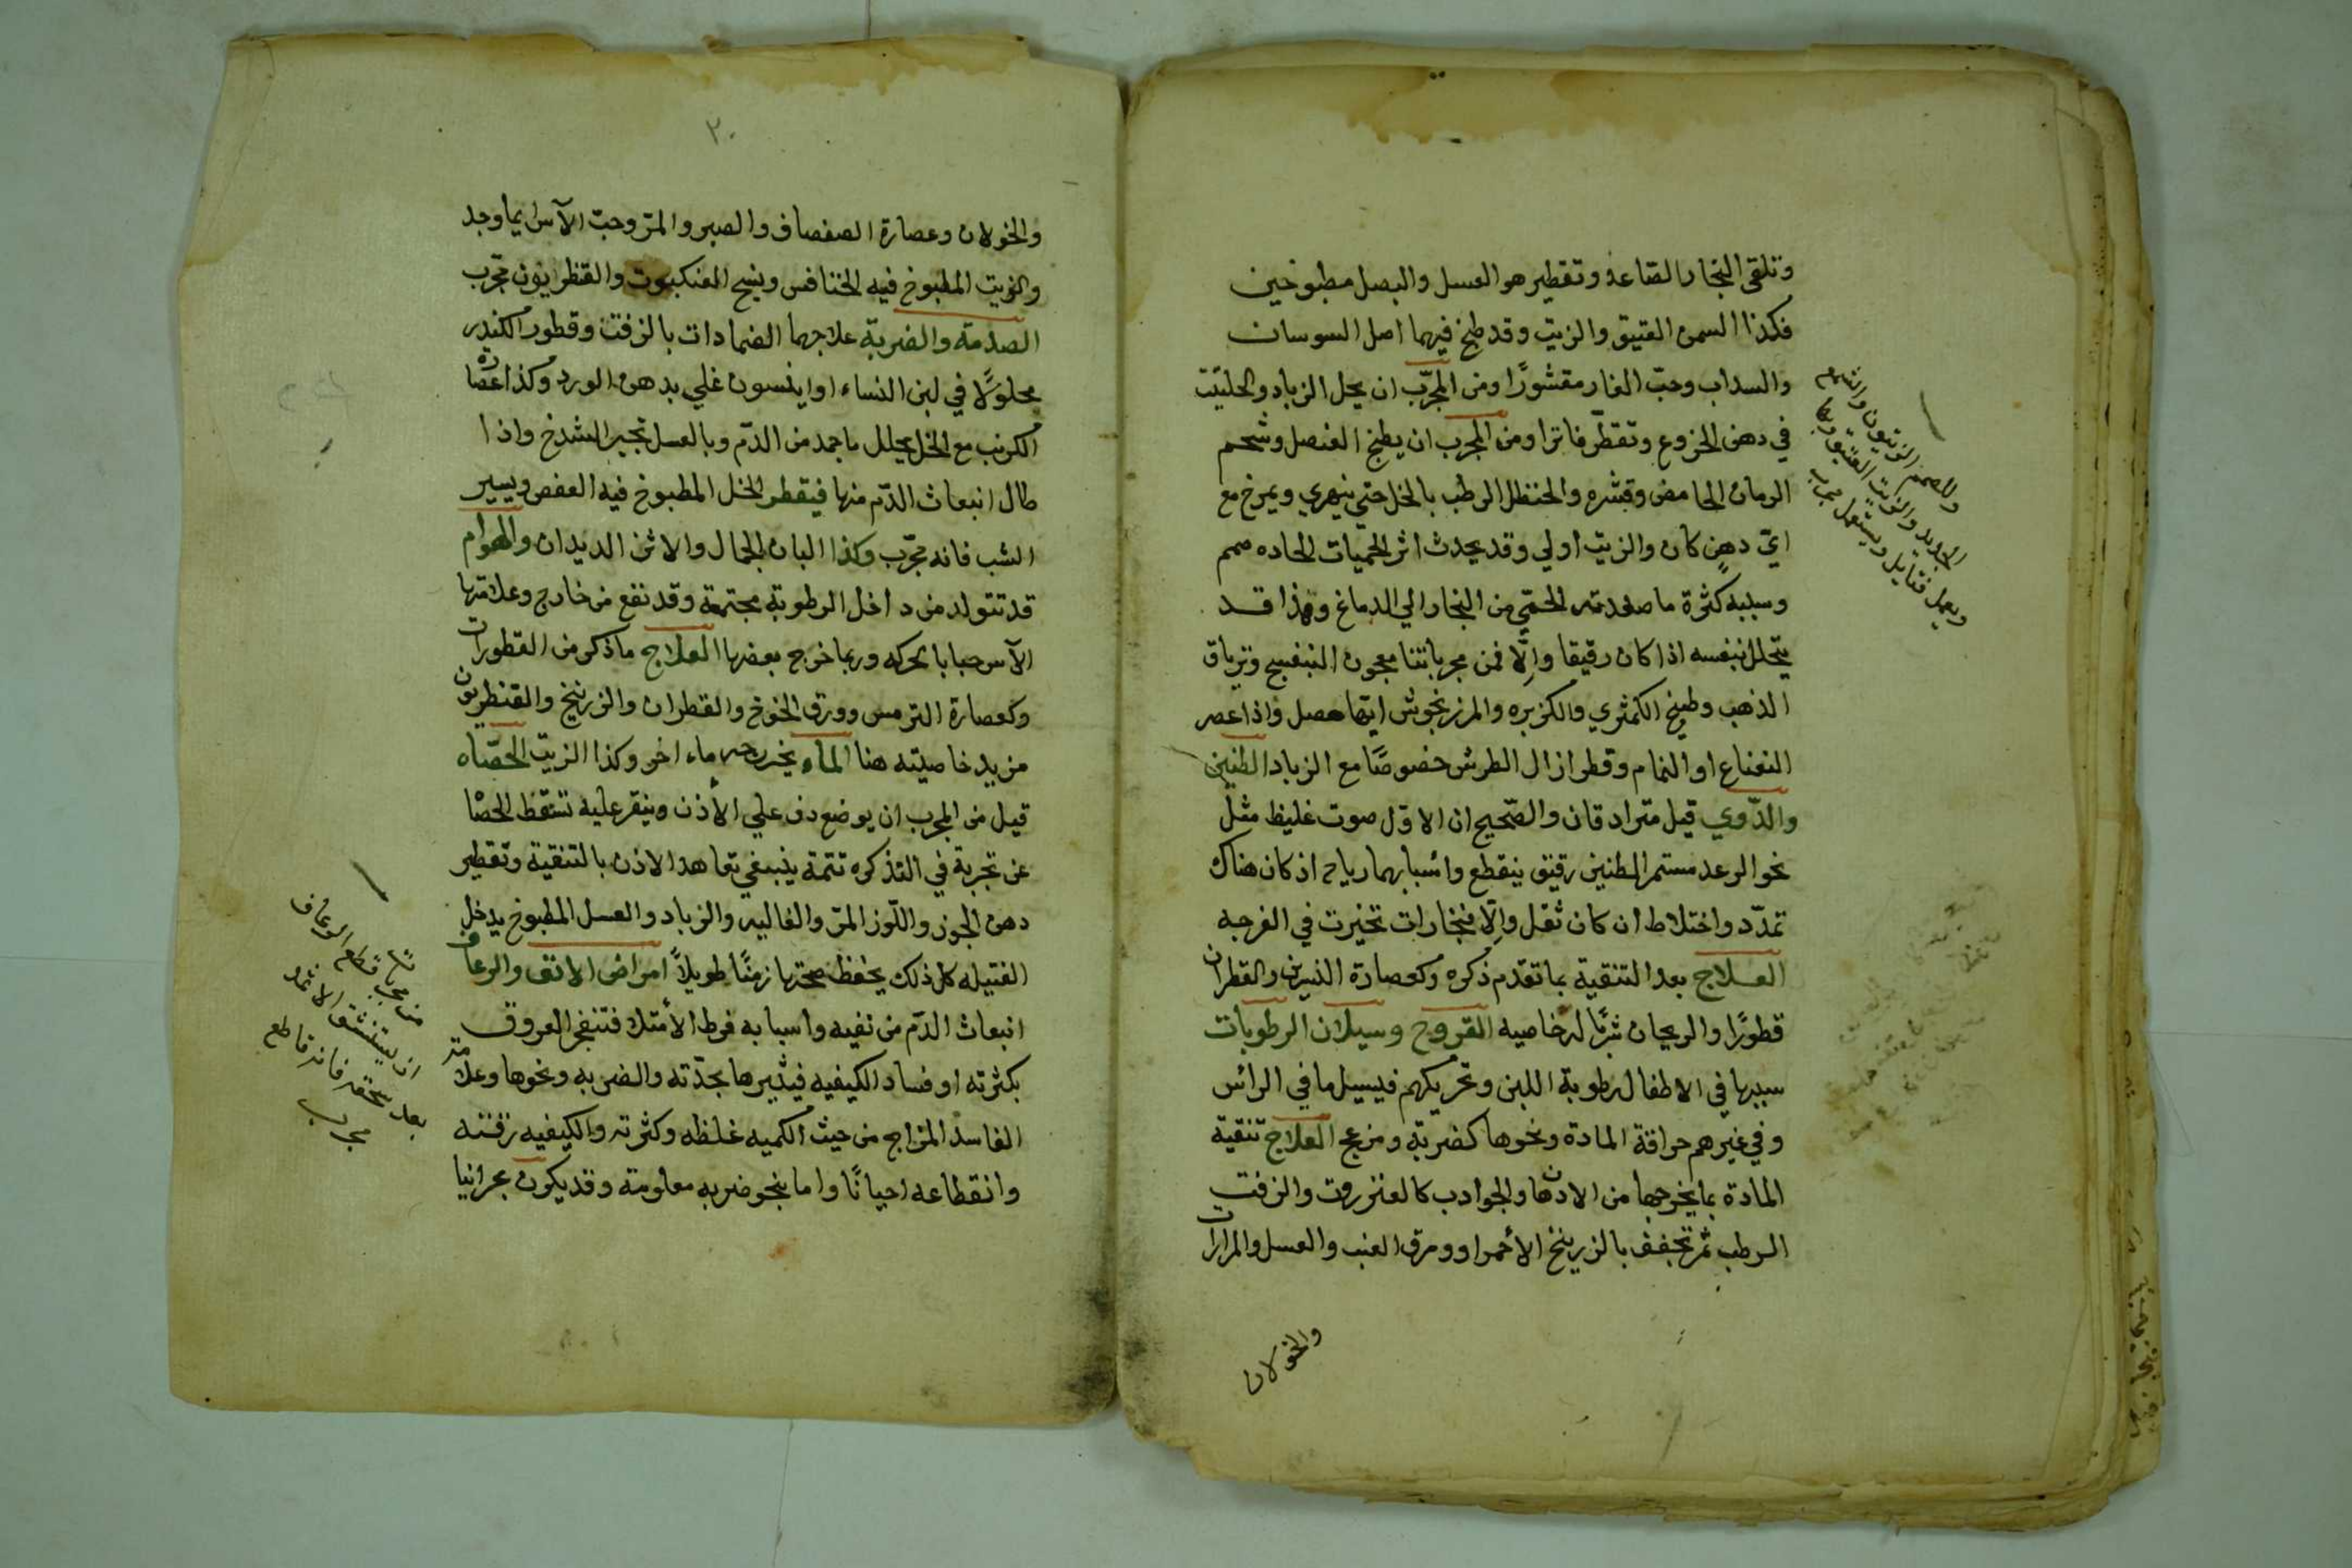 وتلقى البخار الصاعد وتقطير هو العسل والبصل مطبوخين
فكذا السمن العتيق والزيت وقد طبخ فيهما اصل السوسان
والسداب وحبّ الغار مقشورًا ومن المجرّب ان يحل الزباد والحلتيت
في دهن الخروع وتقطّر فاترا ومن المجرب ان يطبخ العنصل وشحم
الرمان الحامض وقشره والحنظل الرطب بالخل حتي يتهري ويمرخ مع
ايّ دهنٍ كان والزيت اولي وقد يحدث اثر الحميات الحاده صمم
وسببه كثرة ما صعدته الحمّي من البخار الي الدماغ وهذا قد
يتحلل بنفسه اذا كان رقيقا والّا فمن مجرباتنا معجون البنفسج وترياق
الذهب وطبيخ الكمثري والكزبره والمرزنجوش ايّها حصل واذا عصر
النعناع او النمام وقطر ازال الطرش خصوصًا مع الزباد الطنين
والدّوي قيل مترادفان والصّحيح ان الاوّل صوت غليظ مثل
نحو الرعد مستمر الطنين رقيق ينقطع واسبابهما رياح اذ كان هناك
تمدّد واختلاط ان كان ثقل والّا فبخارات تحيزت في الفرجه
العلاج بعد التنقية بما تقدم ذكره وكعصارة النسرين والقطران
قطورًا والريحان شربًا له خاصيه القروح وسيلان الرطوبات
سببها في الاطفال رطوبة اللبن وتحريكهم فيسيل ما في الرائس
وفي غيرهم حراقة المادة ونحوها كضربة ومزعج العلاج تنقية
المادة بما يخرجها من الادهان والجوادب كالعنزروت والزفت
الرطب ثم تجفف بالزرنيخ الأحمر او ورق العنب والعسل والمرارات
والخولان
وللصمم الزيتون والثوم
الجديد والزيت العتيق
ويعمل فتايل ويستعمل مجرب
٣٠
والخولان وعصارة الصفصاف والصبر والمرّ وحبّ الآس ايما وجد
والزيت المطبوخ فيه الخنافس ونسج العنكبوت والقنطريون مجّرب
الصدمة والضربة علاجهما الضمادات بالزفت وقطور الكندر
محلولًا في لبن النساء او اينسون غلي بدهن الورد وكذا عصارة
الكرنب مع الخل يحلل ما جمد من الدّم وبالعسل تجبر الشدخ واذا
طال انبعاث الدّم منها فيقطر الخل المطبوخ فيه العفص ويسير
الشب فانه مجّرب وكذا البان الجمال والاتن الديدان والهوام
قد تتولد من داخل الرطوبة مجتمعة وقد تقع من خارج وعلامتها
الآس حبابا بحركه وربما خرج بعضها العلاج ما ذكر من القطورات
وكعصارة الترمس وورق الخوخ والقطران والزرنيخ والقنطريون
مزيد خاصيته هنا الماء يخرجه ماء اخر وكذا الزيت الحصّاه
قيل من المجرب ان يوضع دف علي الأذن وينقر عليه تسقط الحصا
عن تجربة في التذكره تتمة ينبغي تعاهد الاذن بالتنقية وتقطير
دهن الجوز واللّوز المرّ والغاليه والزباد والعسل المطبوخ يدخل
الفتيله كل ذلك يحفظ صحتها زمنًا طويلاً امراض الانف والرعاف
انبعاث الدّم من نفيه واسبابه فرط الأمتلا فتنفجر العروق
بكثرته او فساد الكيفيه فيثيرها بحدّته والضربه ونحوها وعلامة
الفاسد المزاج من حيث الكميه غلظه وكثرته والكيفيه رقته
وانقطاعه احيانًا واما بنحو ضربه معلومة وقد يكون بحرانيا
قطع الرعاف
ان يستنشق الاثمد
بعد سحقه فانه قاطع
مجرب